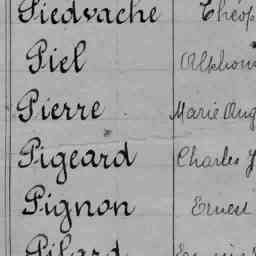 Piedvache Théop
Piel Alphon
Pierre Marie Aug
Pigeard Charles J
Pignon Ernest
Pilard